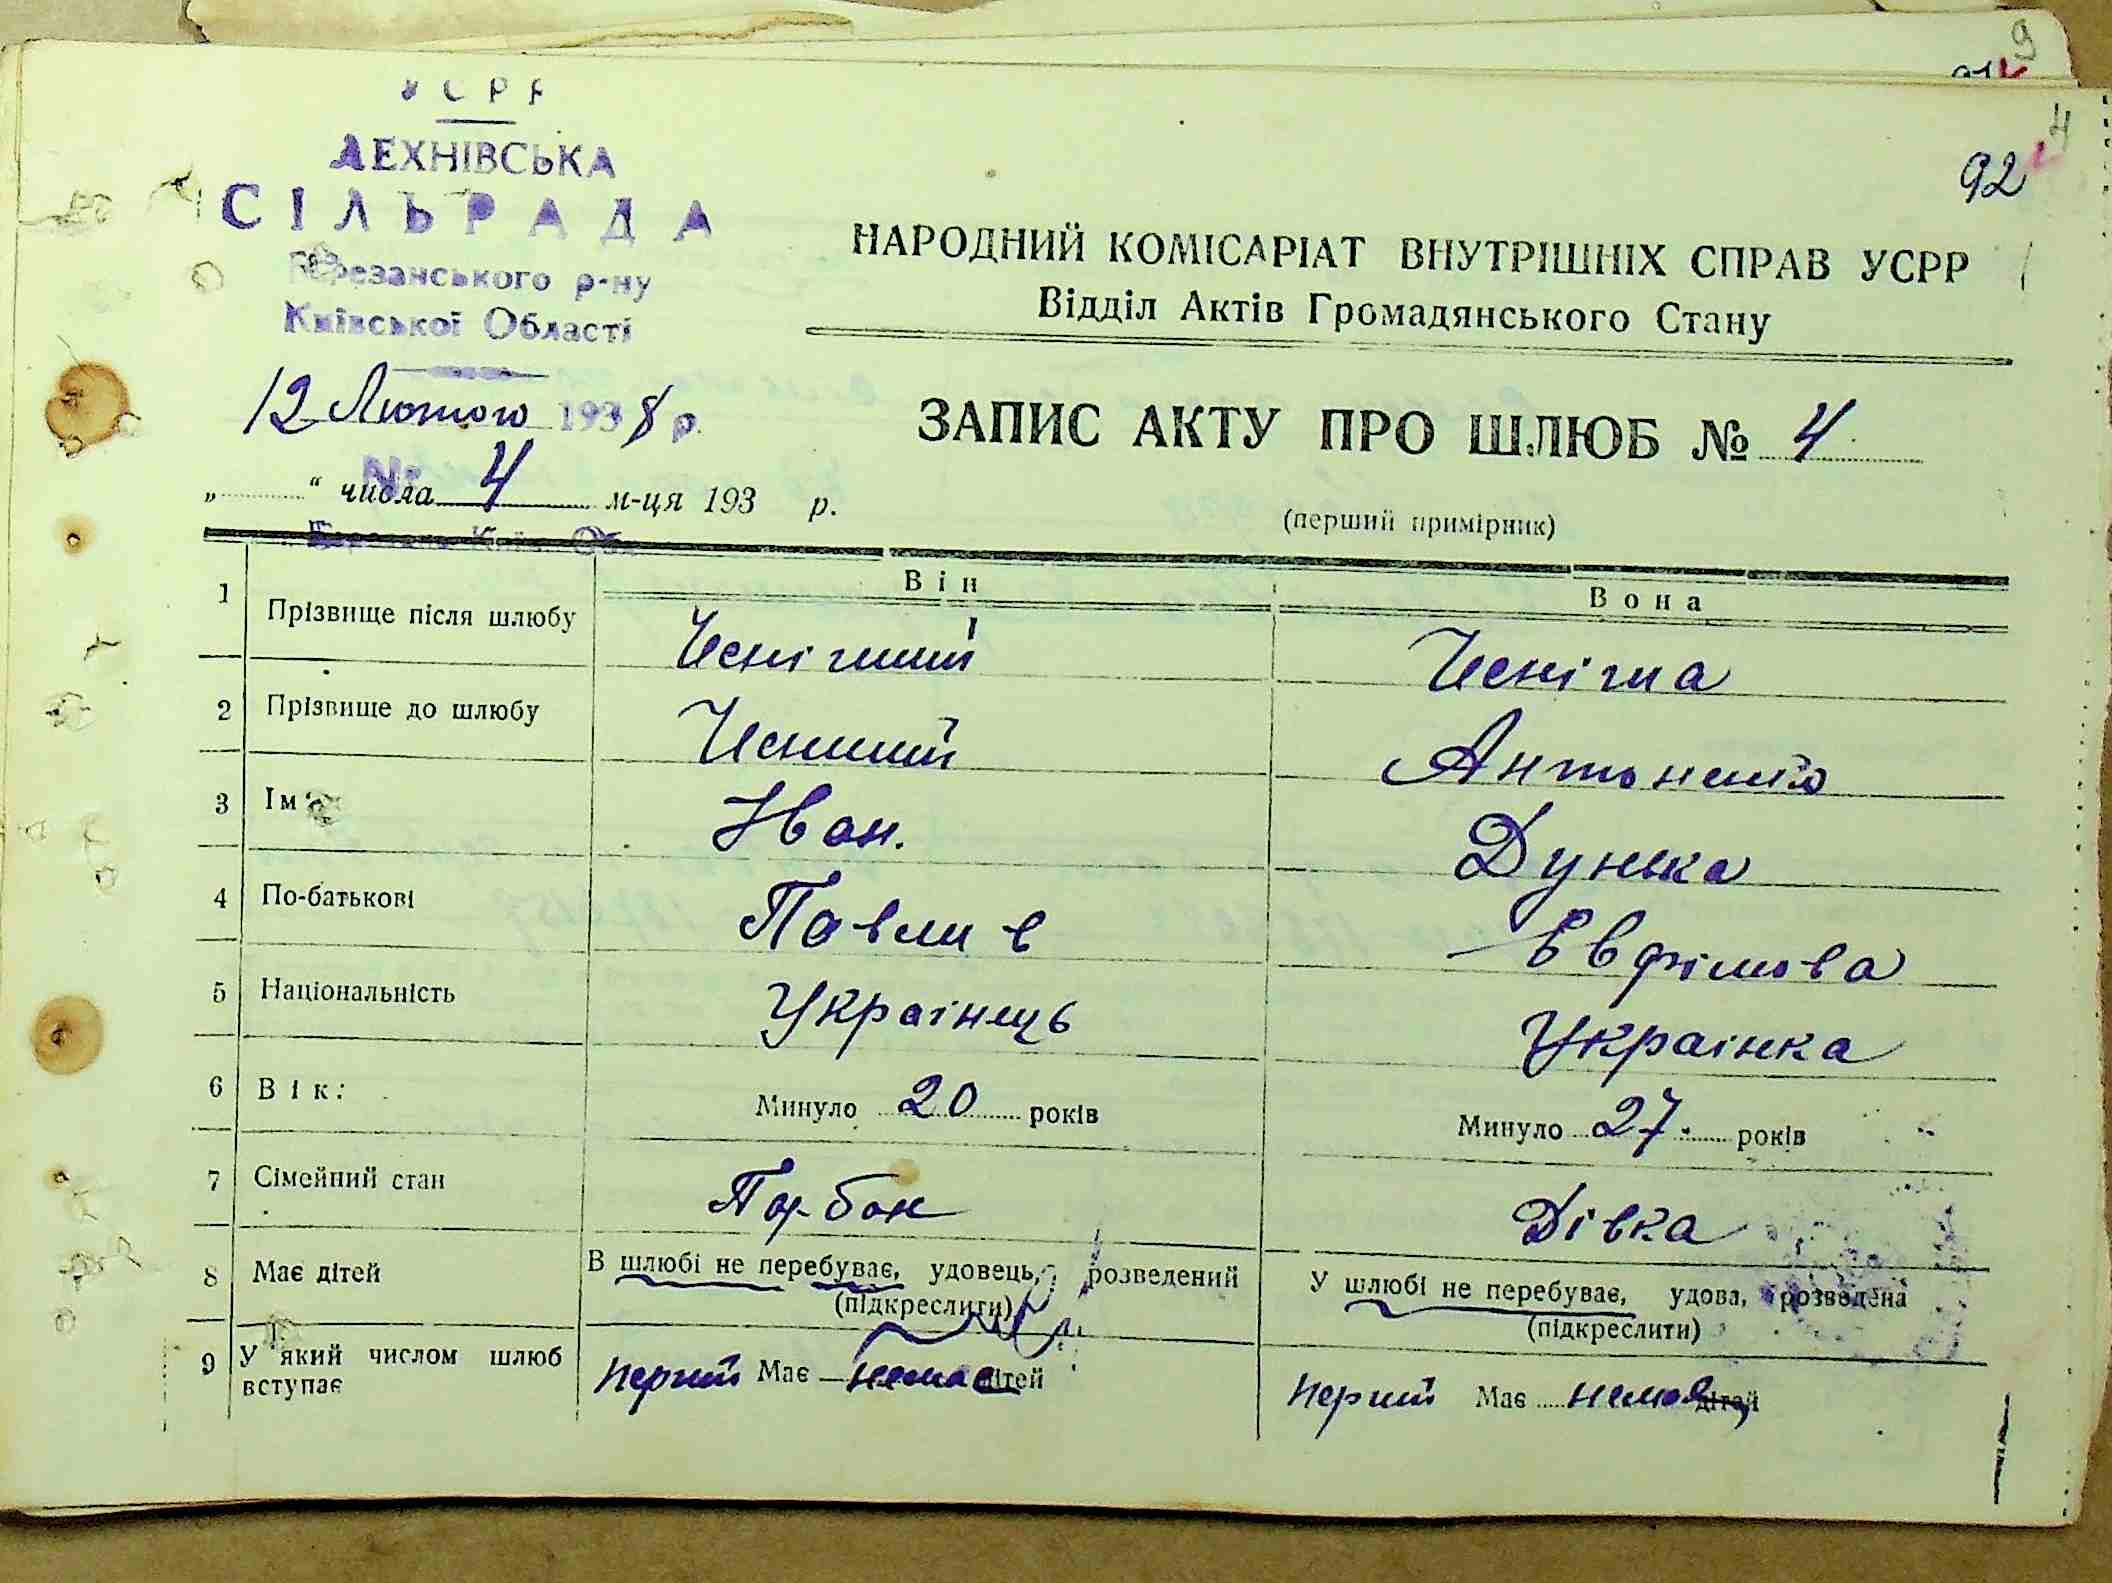 9
92
4
УСРР
ЛЕХНІВСЬКА
СІЛЬРАДА
Березанського р-ну
Київської Області
12 Лютого 1938 р.
№ 4
НАРОДНИЙ КОМІСАРІАТ ВНУТРІШНІХ СПРАВ УСРР
Відділ Актів Громадянського Стану
ЗАПИС АКТУ ПРО ШЛЮБ № 4
„ “ числа м-ця 193 р.
(перший примірник)
Він Вона
1 Прізвище після шлюбу Чеснігший Чесніша
2 Прізвище до шлюбу Чесниший Антоненко
3 Ім'я Іван. Дунька
4 По-батькові Павлив Евфімова
5 Національність Українець Українка
6 Вік: Минуло 20 років Минуло 27 років
7 Сімейний стан Парбок Дівка
8 Має дітей В шлюбі не перебуває, удовець, розведений У шлюбі не перебуває, удова, розведена
(підкреслити) (підкреслити)
9 У який числом шлюб вступає перший Має немає дітей перший Має немає дітей